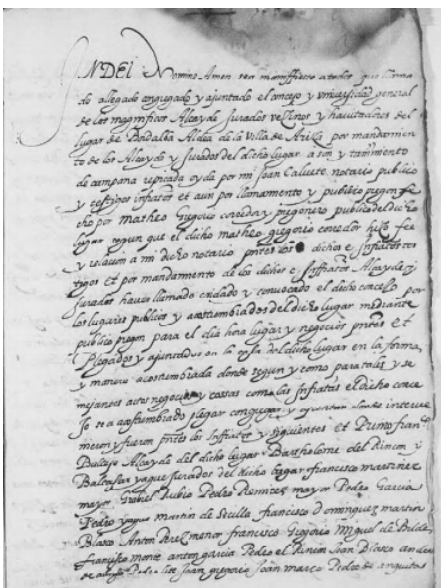 INDEI Nomine Amen sea maniffiesto a todos que llama
do allegado congregado y ajuntado el concejo y universidad general
de los magnificos Alcayde Jurados veZinos y havitadores del
lugar de Bordalba Aldea de la Villa de AriZa por mandamien
to de los Alcayde y Jurados del dicho lugar a son y tañimiento
de campana repicada oyda por mi Joan Calvete notario publico
y testigos infrascriptos et aun por llamamiento y publico pregon fe
cho por matheo Gregorio corredor y pregonero publico del dicho
lugar segun que el dicho matheo gregorio corredor hiZo fee
y relacion a mi dicho notario pntes los dichos e infrascriptos tes
tigos Et por mandamiento de los dichos e Inffrascriptos Alcayde y
Jurados haver llamado cridado y convocado el dicho concejo por
los lugares publicos y acostumbrados del dicho lugar mediante
publico pregon para el dia hora lugar y negocios pntes et
Plegados y ajuntados en la casa del dicho lugar en la forma
y manera acostumbrada donde segun y como para tales y se
mejantes actos negocios y cossas como las Infrascriptas el dicho conce
Jo se a acostumbrado plegar congregar y ajuntar donde interve
nieron y fueron pntes los Inffrascriptos y siguientes Et Primo fran.co
Alcayde del dicho lugar Bartholome del Rincon y
Baltasar yague Jurados del dicho lugar francisco martineZ
mayor Gabriel Rubio Pedro RamireZ mayor Pedro Garcia
Pedro yague martin de Sevilla francisco dominguez martin
Blasco Anton PereZ menor francisco Gregorio Miguel de
francisco monte anton garcia Pedro el Rincon Joan Blasco andres
Pedro Joan gregorio Joan marco Pedro de anguitas